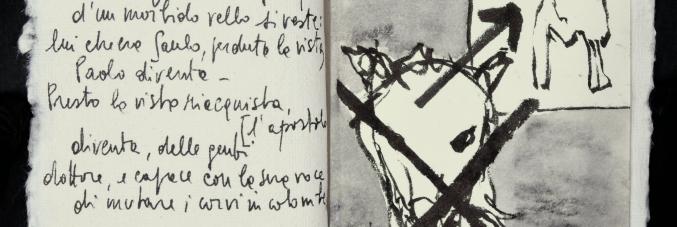 d'un morbido vello si veste:
lui ch'era Saulo, perduta la vista,
Paolo diventa –
Presto la vista riacquista,
[l'apostolo
diventa, delle genti
dottore, e capace con la sua voce
di mutare i corvi in colombe